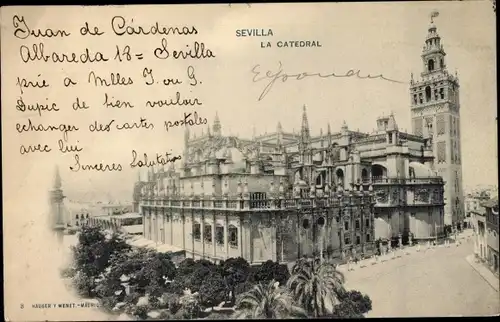 Juan de Cárdenas
Albareda 18 = Sevilla
prie à Melles J. ou G.
Dupic de bien vouloir
echanger des cartes postales
avec lui
Sinceres Salutatios
SEVILLA
LA CATEDRAL
HAUSER Y MENET.-MADRID